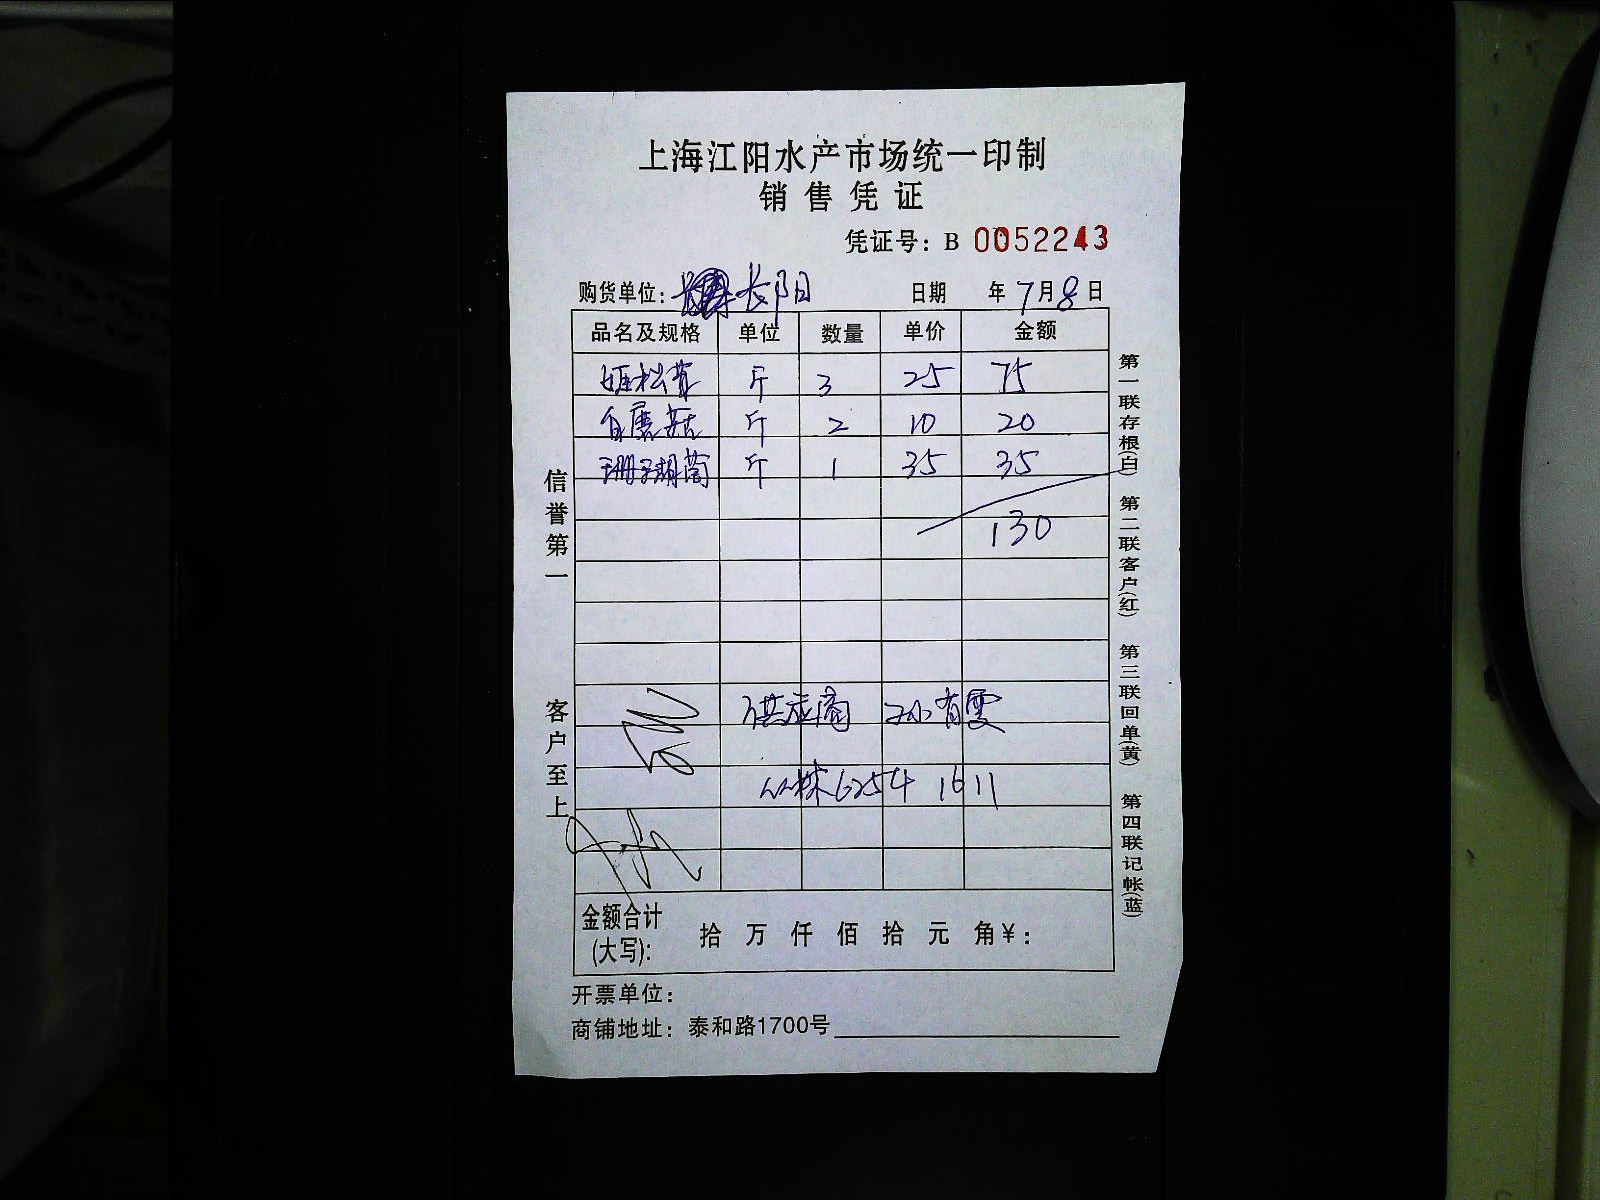 上海江阳水产市场统一印制
销售凭证
凭证号：B 0052243
购货单位：长阳 日期 年7月8日
品名及规格 单位 数量 单价 金额
姬松茸 斤 3 25 75
白蘑菇 斤 2 10 20
珊瑚菌 斤 1 35 35
130
供应商 孙有雯
6254 1611
金额合计(大写)： 拾 万 仟 佰 拾 元 角￥：
开票单位：
商铺地址：泰和路1700号
信誉第一 客户至上
第一联存根(白) 第二联客户(红) 第三联回单(黄) 第四联记帐(蓝)